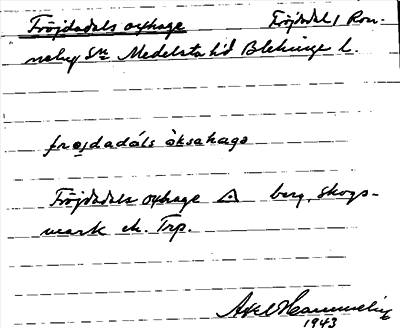 Fröjdadals oxhage Fröjdadal, Ron-
neby Sn Medelsta hd Blekinge l.
frøjdadáls òksahagə
Fröjdadals oxhage △ berg, skogs-
mark ek. Trp.
Axel Hammelin
1943